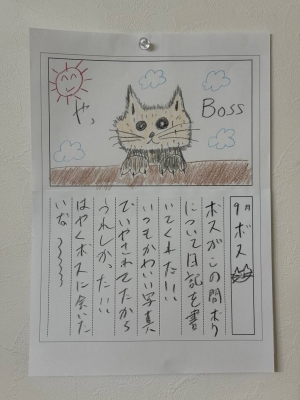 やっ
Boss
9月 ボス
ボスがこの間ボク
について日記を書
いてくれた!!
いつもかわいい写真
でいやされてたから
うれしかった!!
はやくボスに会いた
いな〜〜〜